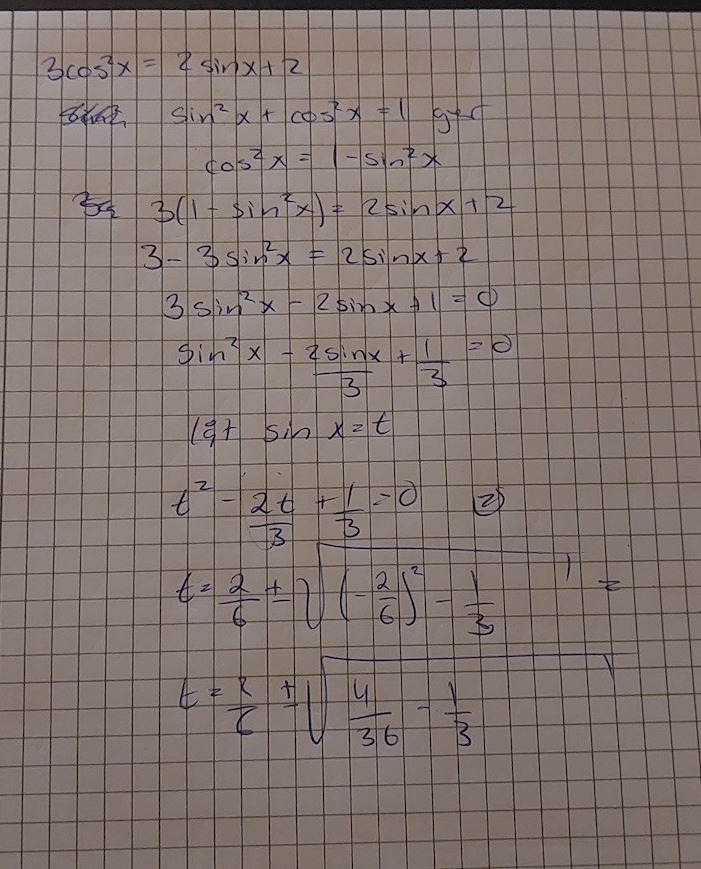 3cos²x = 2sinx+2
sin²x + cos²x = 1 ger
cos²x = 1-sin²x
3(1 - sin²x) = 2sinx+2
3 - 3sin²x = 2sinx+2
3sin²x - 2sinx + 1 = 0
sin²x - 2sinx/3 + 1/3 = 0
låt sin x = t
t² - 2t/3 + 1/3 = 0
t = 2/6 ± √((-2/6)² - 1/3) =
t = 2/6 ± √(4/36 - 1/3)